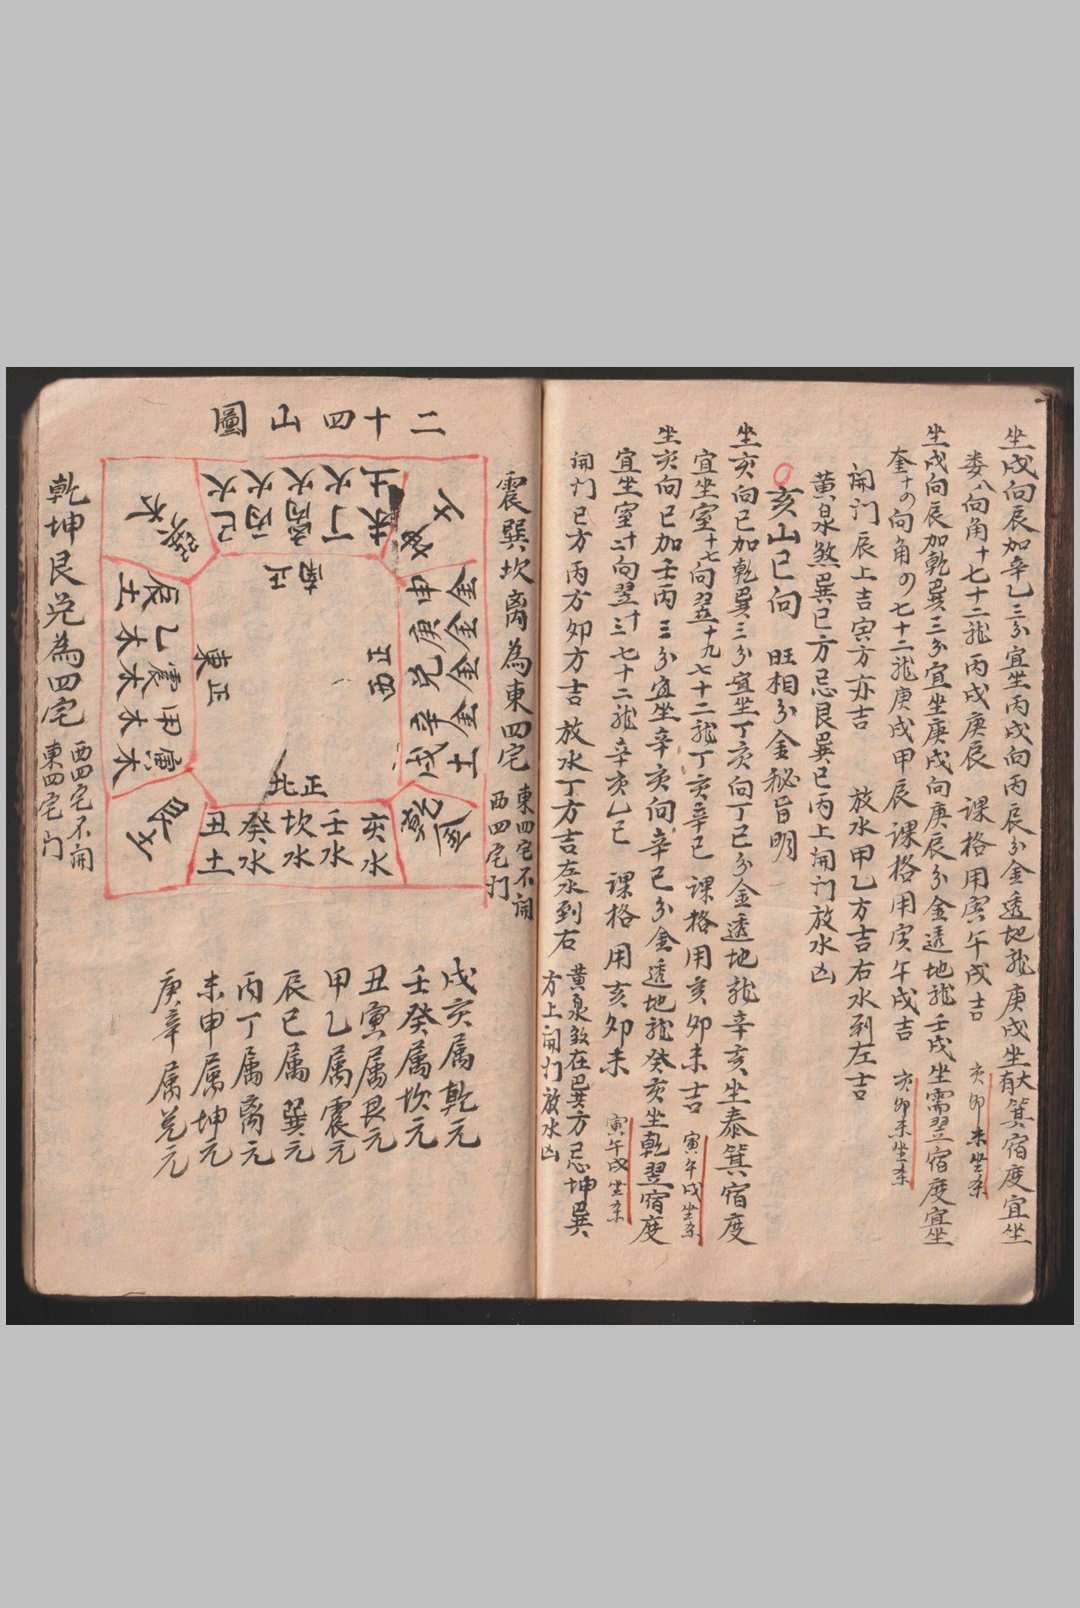 坐戌向辰加辛乙三分宜坐丙戌向丙辰分金透地龍庚戌坐大畎箕宿度宜坐
娄八向角十七十二龍丙戌庚辰 課格用寅午戌吉 亥卯未坐杀
坐戌向辰加乾巽三分宜坐庚戌向庚辰分金透地龍壬戌坐需翌宿度宜坐
奎十の向角の七十二龍庚戌甲辰 課格用寅午戌吉 亥卯未坐杀
開门辰上吉寅方亦吉 放水甲乙方吉右水到左吉
黄泉煞巽巳方忌艮巽巳丙上開门放水凶
亥山巳向 旺相分金秘旨明
坐亥向巳加乾巽三分宜坐丁亥向丁巳分金透地龍辛亥坐泰箕宿度
宜坐室十七向翌十九七十二龍丁亥辛巳 課格用亥卯未吉 寅午戌坐杀
坐亥向巳加壬丙三分宜坐辛亥向辛巳分金透地龍癸亥坐乾翌宿度
宜坐室二十向翌十三七十二龍辛亥乙巳 課格用亥卯未 寅午戌坐杀
開门巳方丙方卯方吉 放水丁方吉左水到右 黄泉煞在巴巽方忌坤巽
方上開门放水凶
二十四山圖
震巽坎离為東四宅 東四宅不開
西四宅门
巽木
巳火
丙火
离丙火
丁火
未土
坤土
正南
辰土
乙木
震木
甲木
寅木
正東
申金
庚金
兑金
辛金
戌土
正西
正北
艮土
丑土
癸水
坎水
壬水
亥水
乾金
乾坤艮兑為四宅 西四宅不開
東四宅门
戌亥属乾元
壬癸属坎元
丑寅属艮元
甲乙属震元
辰巳属巽元
丙丁属离元
未申属坤元
庚辛属兑元